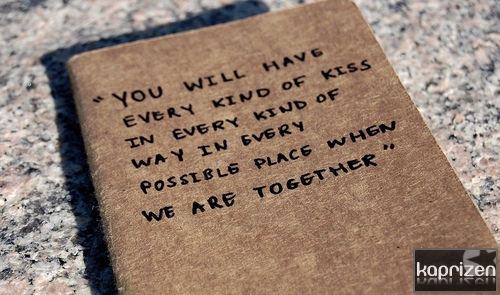 "YOU WILL HAVE
EVERY KIND OF KISS
IN EVERY KIND OF
WAY IN EVERY
POSSIBLE PLACE WHEN
WE ARE TOGETHER"
kaprizen